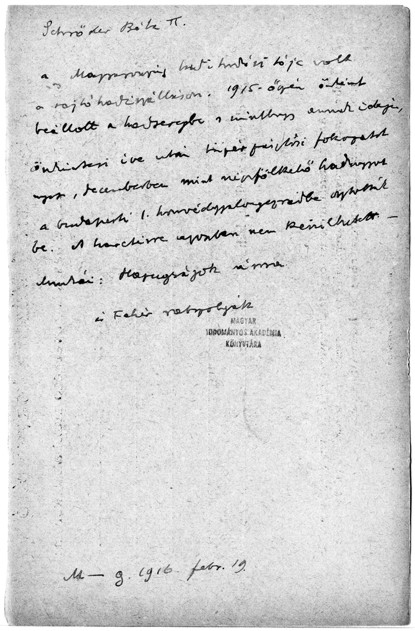 Schröder Béla †.
a Magyarország haditudósítója volt
a sajtóhadiszálláson. 1915 őszén önként
beállott a hadseregbe s minthogy annak idején
önkéntesi éve után tüzér fokozatot
nyert, decemberben mint népfölkelő hadnagyot
a budapesti 1. honvédgyalogezredbe osztották
be. A harctérre azonban nem kerülhetett —
Munkái: Hazugságok városa
és Fehér rabszolgák
MAGYAR
TUDOMÁNYOS AKADÉMIA
KÖNYVTÁRA
M — g. 1916. febr. 19.